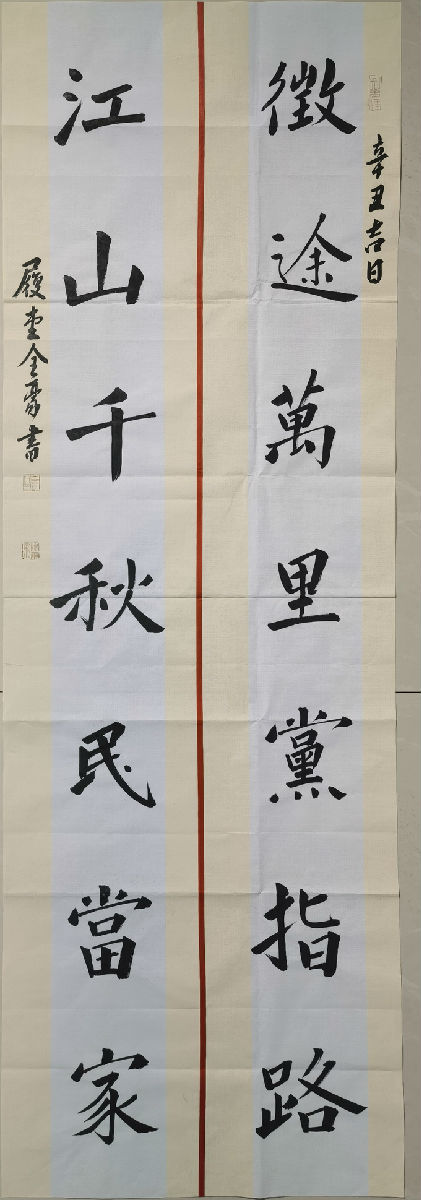 辛丑吉日
徵途萬里黨指路
江山千秋民當家
履堂全豪書